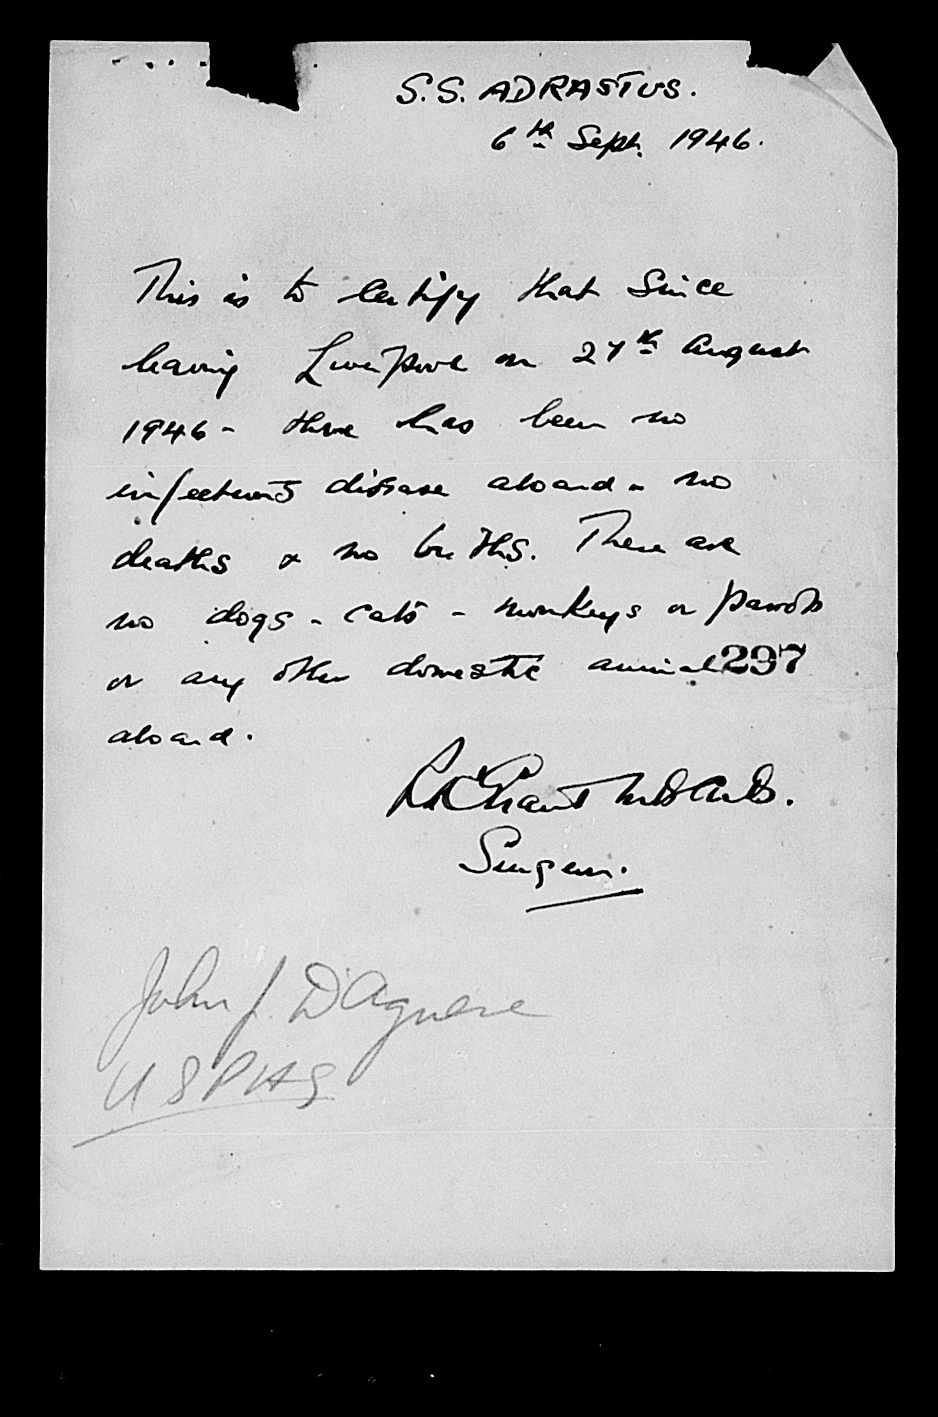 S.S. ADRASTUS.
6th Sept. 1946.
This is to certify that since
leaving Liverpool on 27th August
1946 - there has been no
infectious disease aboard - no
deaths & no births. There are
no dogs - cats - monkeys or parrots
or any other domestic animal 297
aboard.
Surgeon.
John J. D'Agnese
USPHS